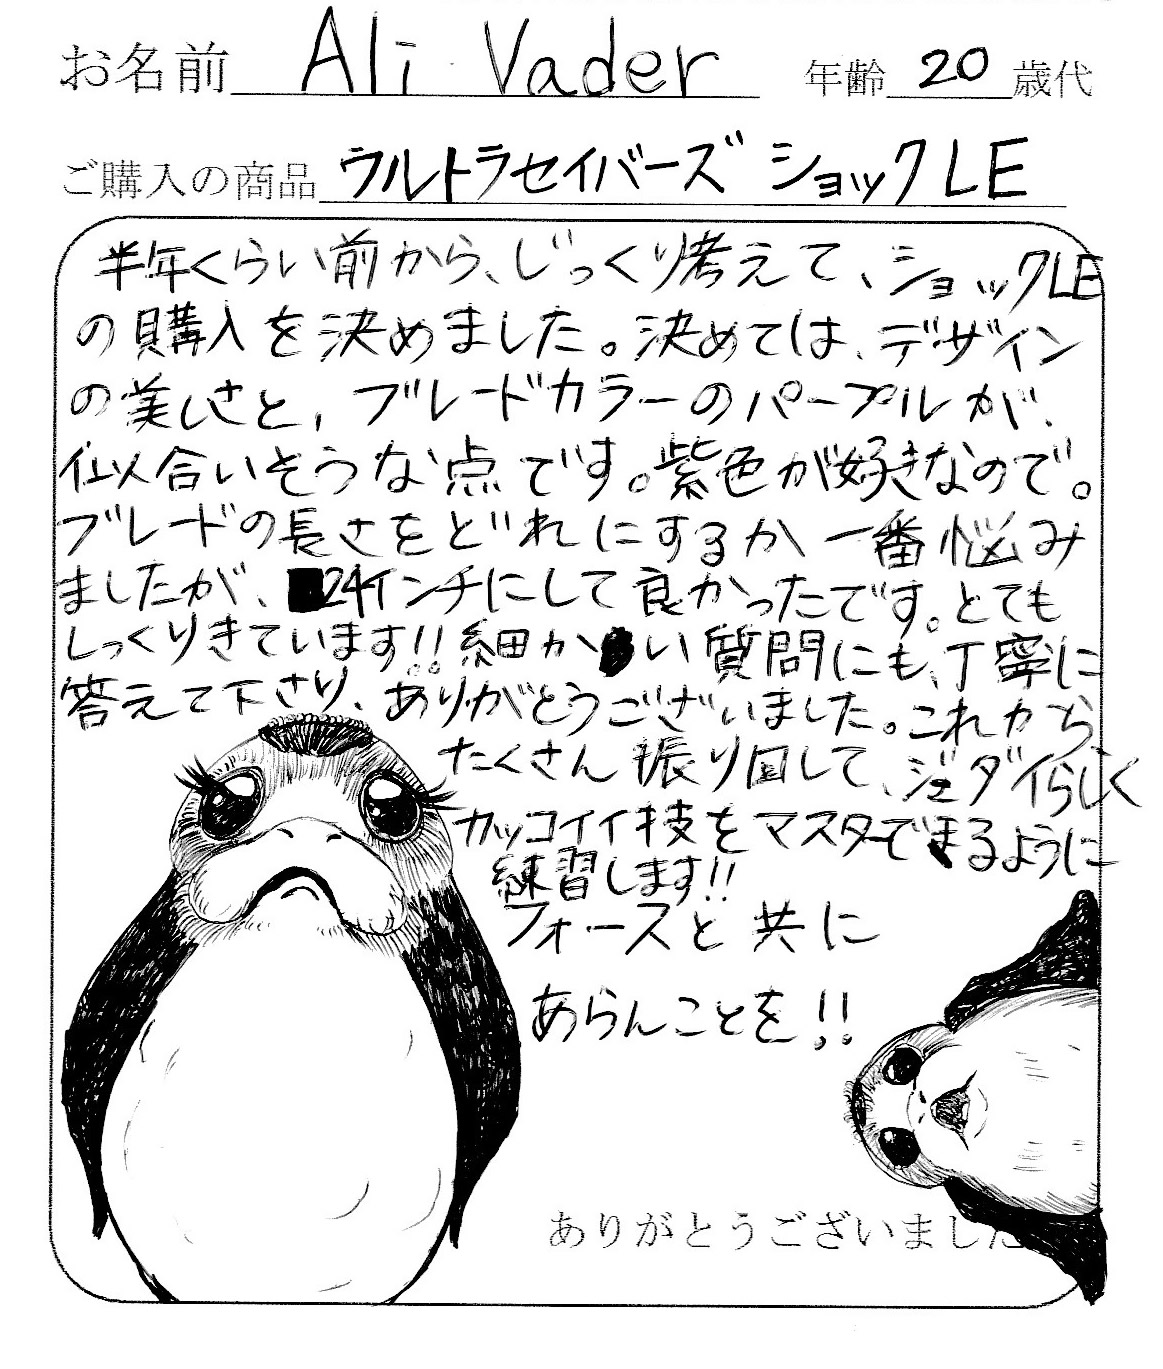 お名前 Ali Vader 年齢 20 歳代
ご購入の商品 ウルトラセイバーズ ショックLE
半年くらい前から、じっくり考えて、ショックLE
の購入を決めました。決めては、デザイン
の美しさと、ブレードカラーのパープルが、
似合いそうな点です。紫色が好きなので。
ブレードの長さをどれにするか一番悩み
ましたが、24インチにして良かったです。とても
しっくりきています!!細かい質問にも、丁寧に
答えて下さり、ありがとうございました。これから
たくさん振り回して、ジェダイらしく
カッコイイ技をマスターできるように
練習します!!
フォースと共に
あらんことを!!
ありがとうございました